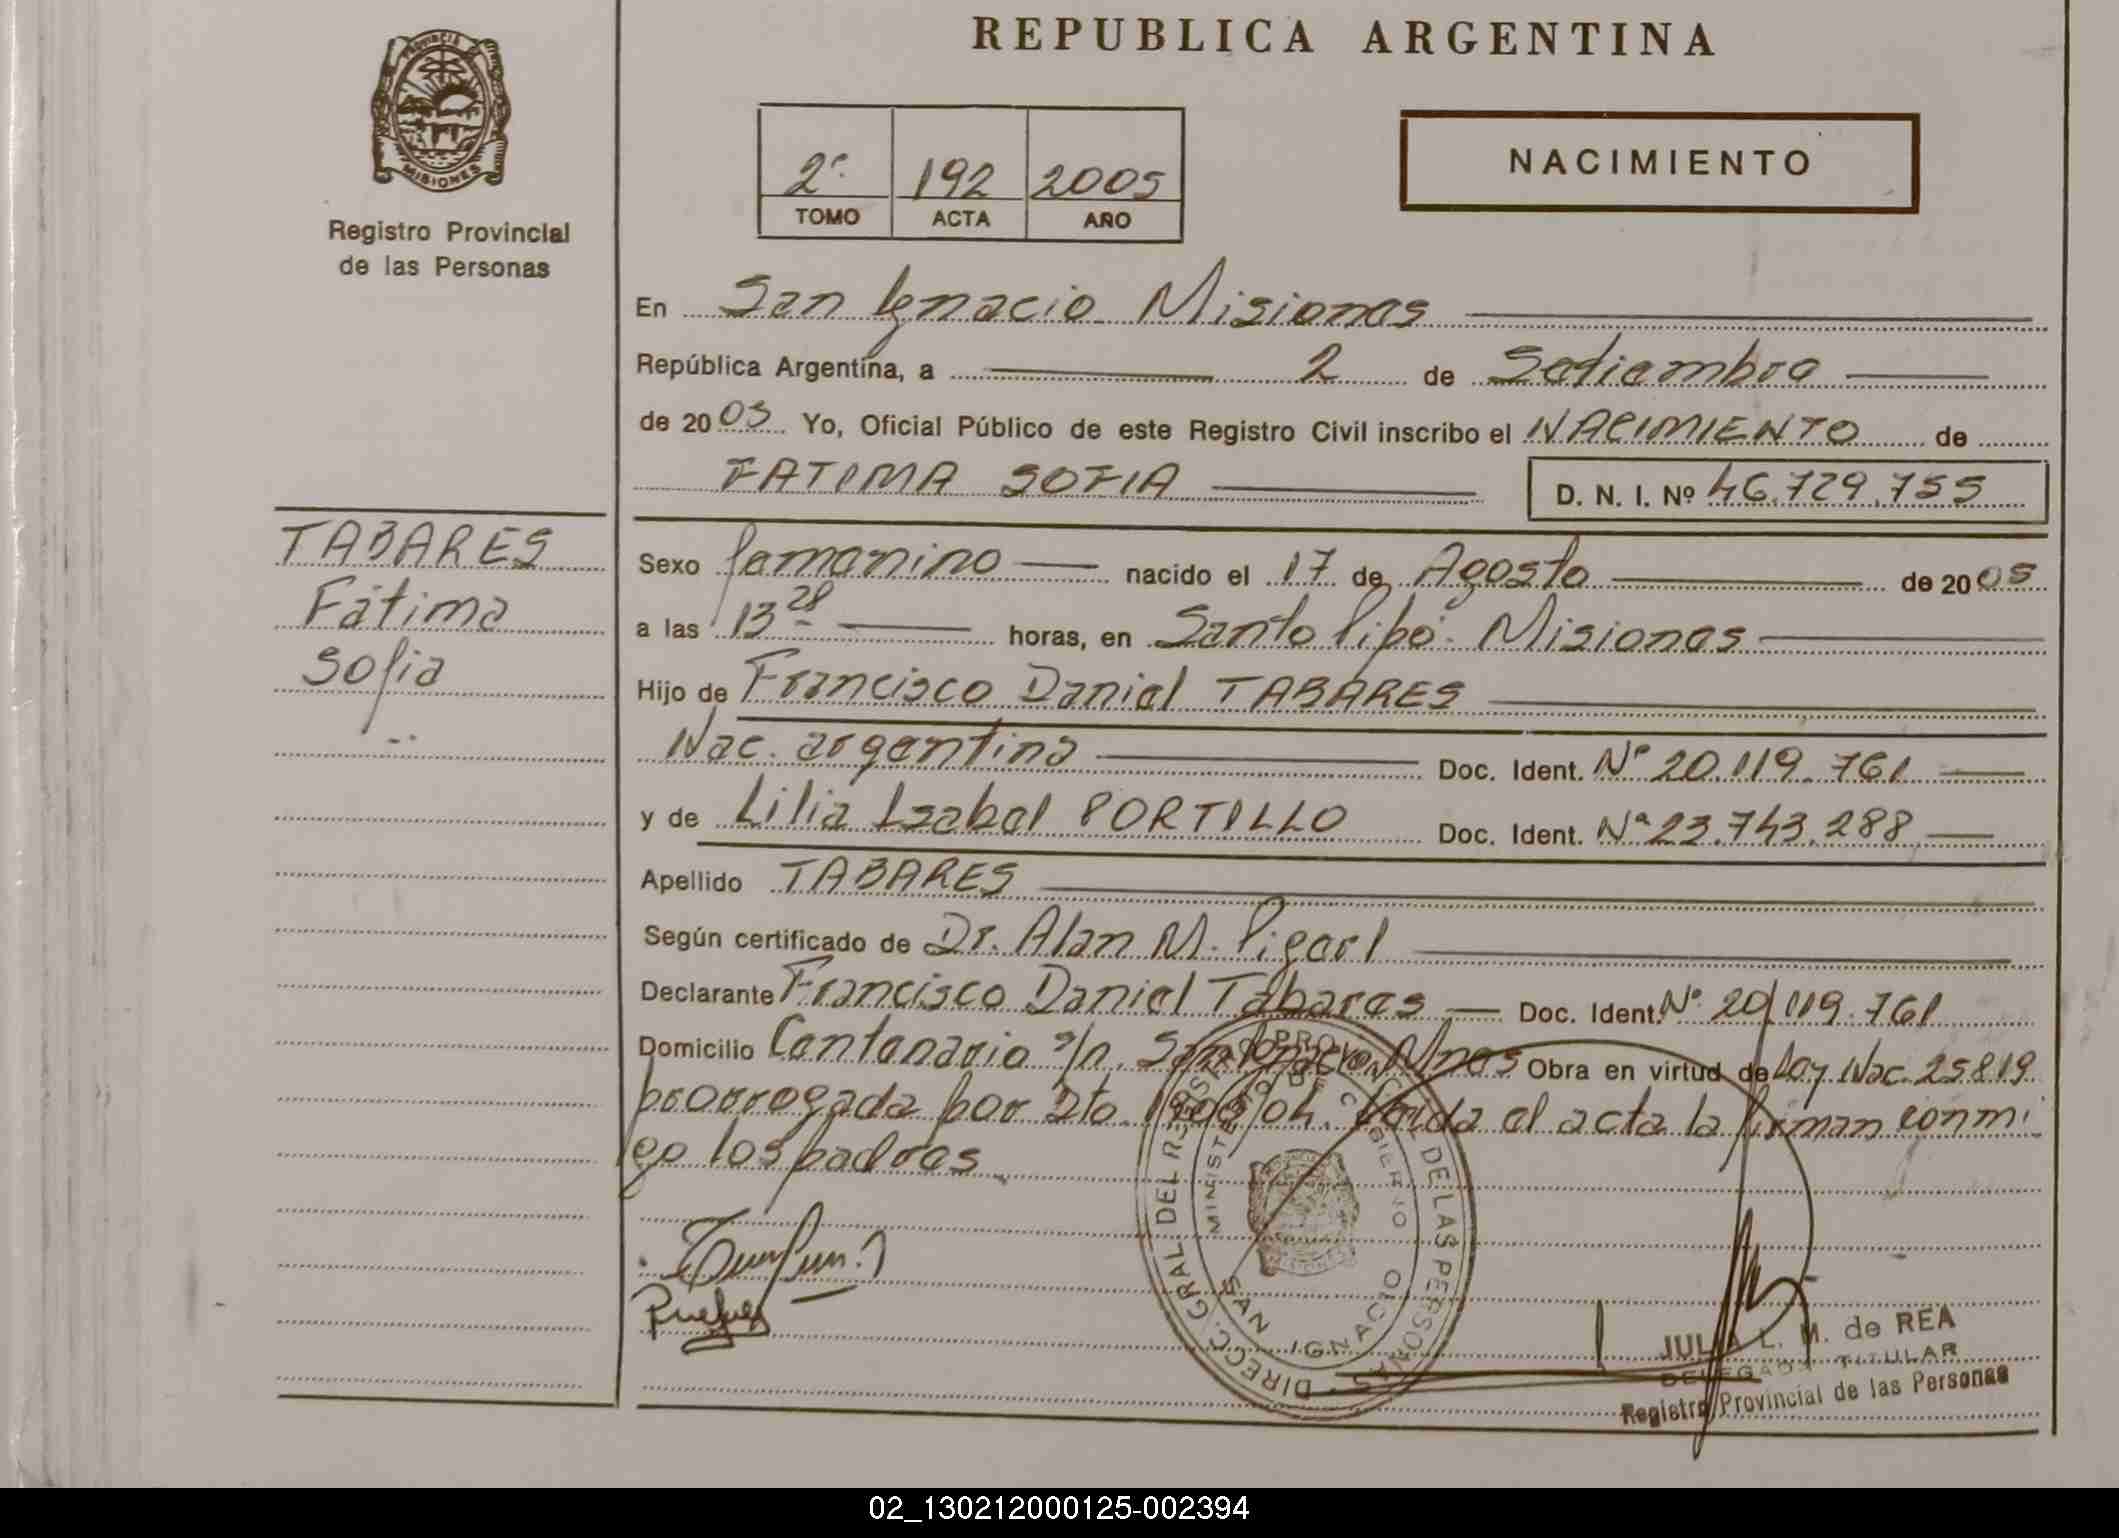 REPUBLICA ARGENTINA
PROVINCIA
MISIONES
Registro Provincial
de las Personas
2º 192 2005
TOMO ACTA AÑO
NACIMIENTO
En San Ignacio Misiones
República Argentina, a 2 de Setiembre
de 2005 Yo, Oficial Público de este Registro Civil inscribo el NACIMIENTO de
FATIMA SOFIA D. N. I. Nº 46.729.755
TABARES
Fátima
Sofia
Sexo femenino nacido el 17 de Agosto de 2005
a las 13 28 horas, en Santo Pipó. Misiones
Hijo de Francisco Daniel TABARES
Nac. argentina Doc. Ident. Nº 20.119.761
y de Lilia Isabel PORTILLO Doc. Ident. Nº 23.743.288
Apellido TABARES
Según certificado de Dr. Alan M.
Declarante Francisco Daniel Tabares Doc. Ident. Nº 20.119.761
Domicilio Centenario s/n. San Ignacio Mnes Obra en virtud de Ley Nac. 25819
prorrogada por Dto. /04. Leida el acta la firman conmi
go los padres
DIRECC. GRAL DEL REGISTRO PROVINCIAL DE LAS PERSONAS
MINISTERIO DE GOBIERNO
SAN IGNACIO
MISIONES
JULIA L. M. de REA
DELEGADA TITULAR
Registro Provincial de las Personas
02_130212000125-002394